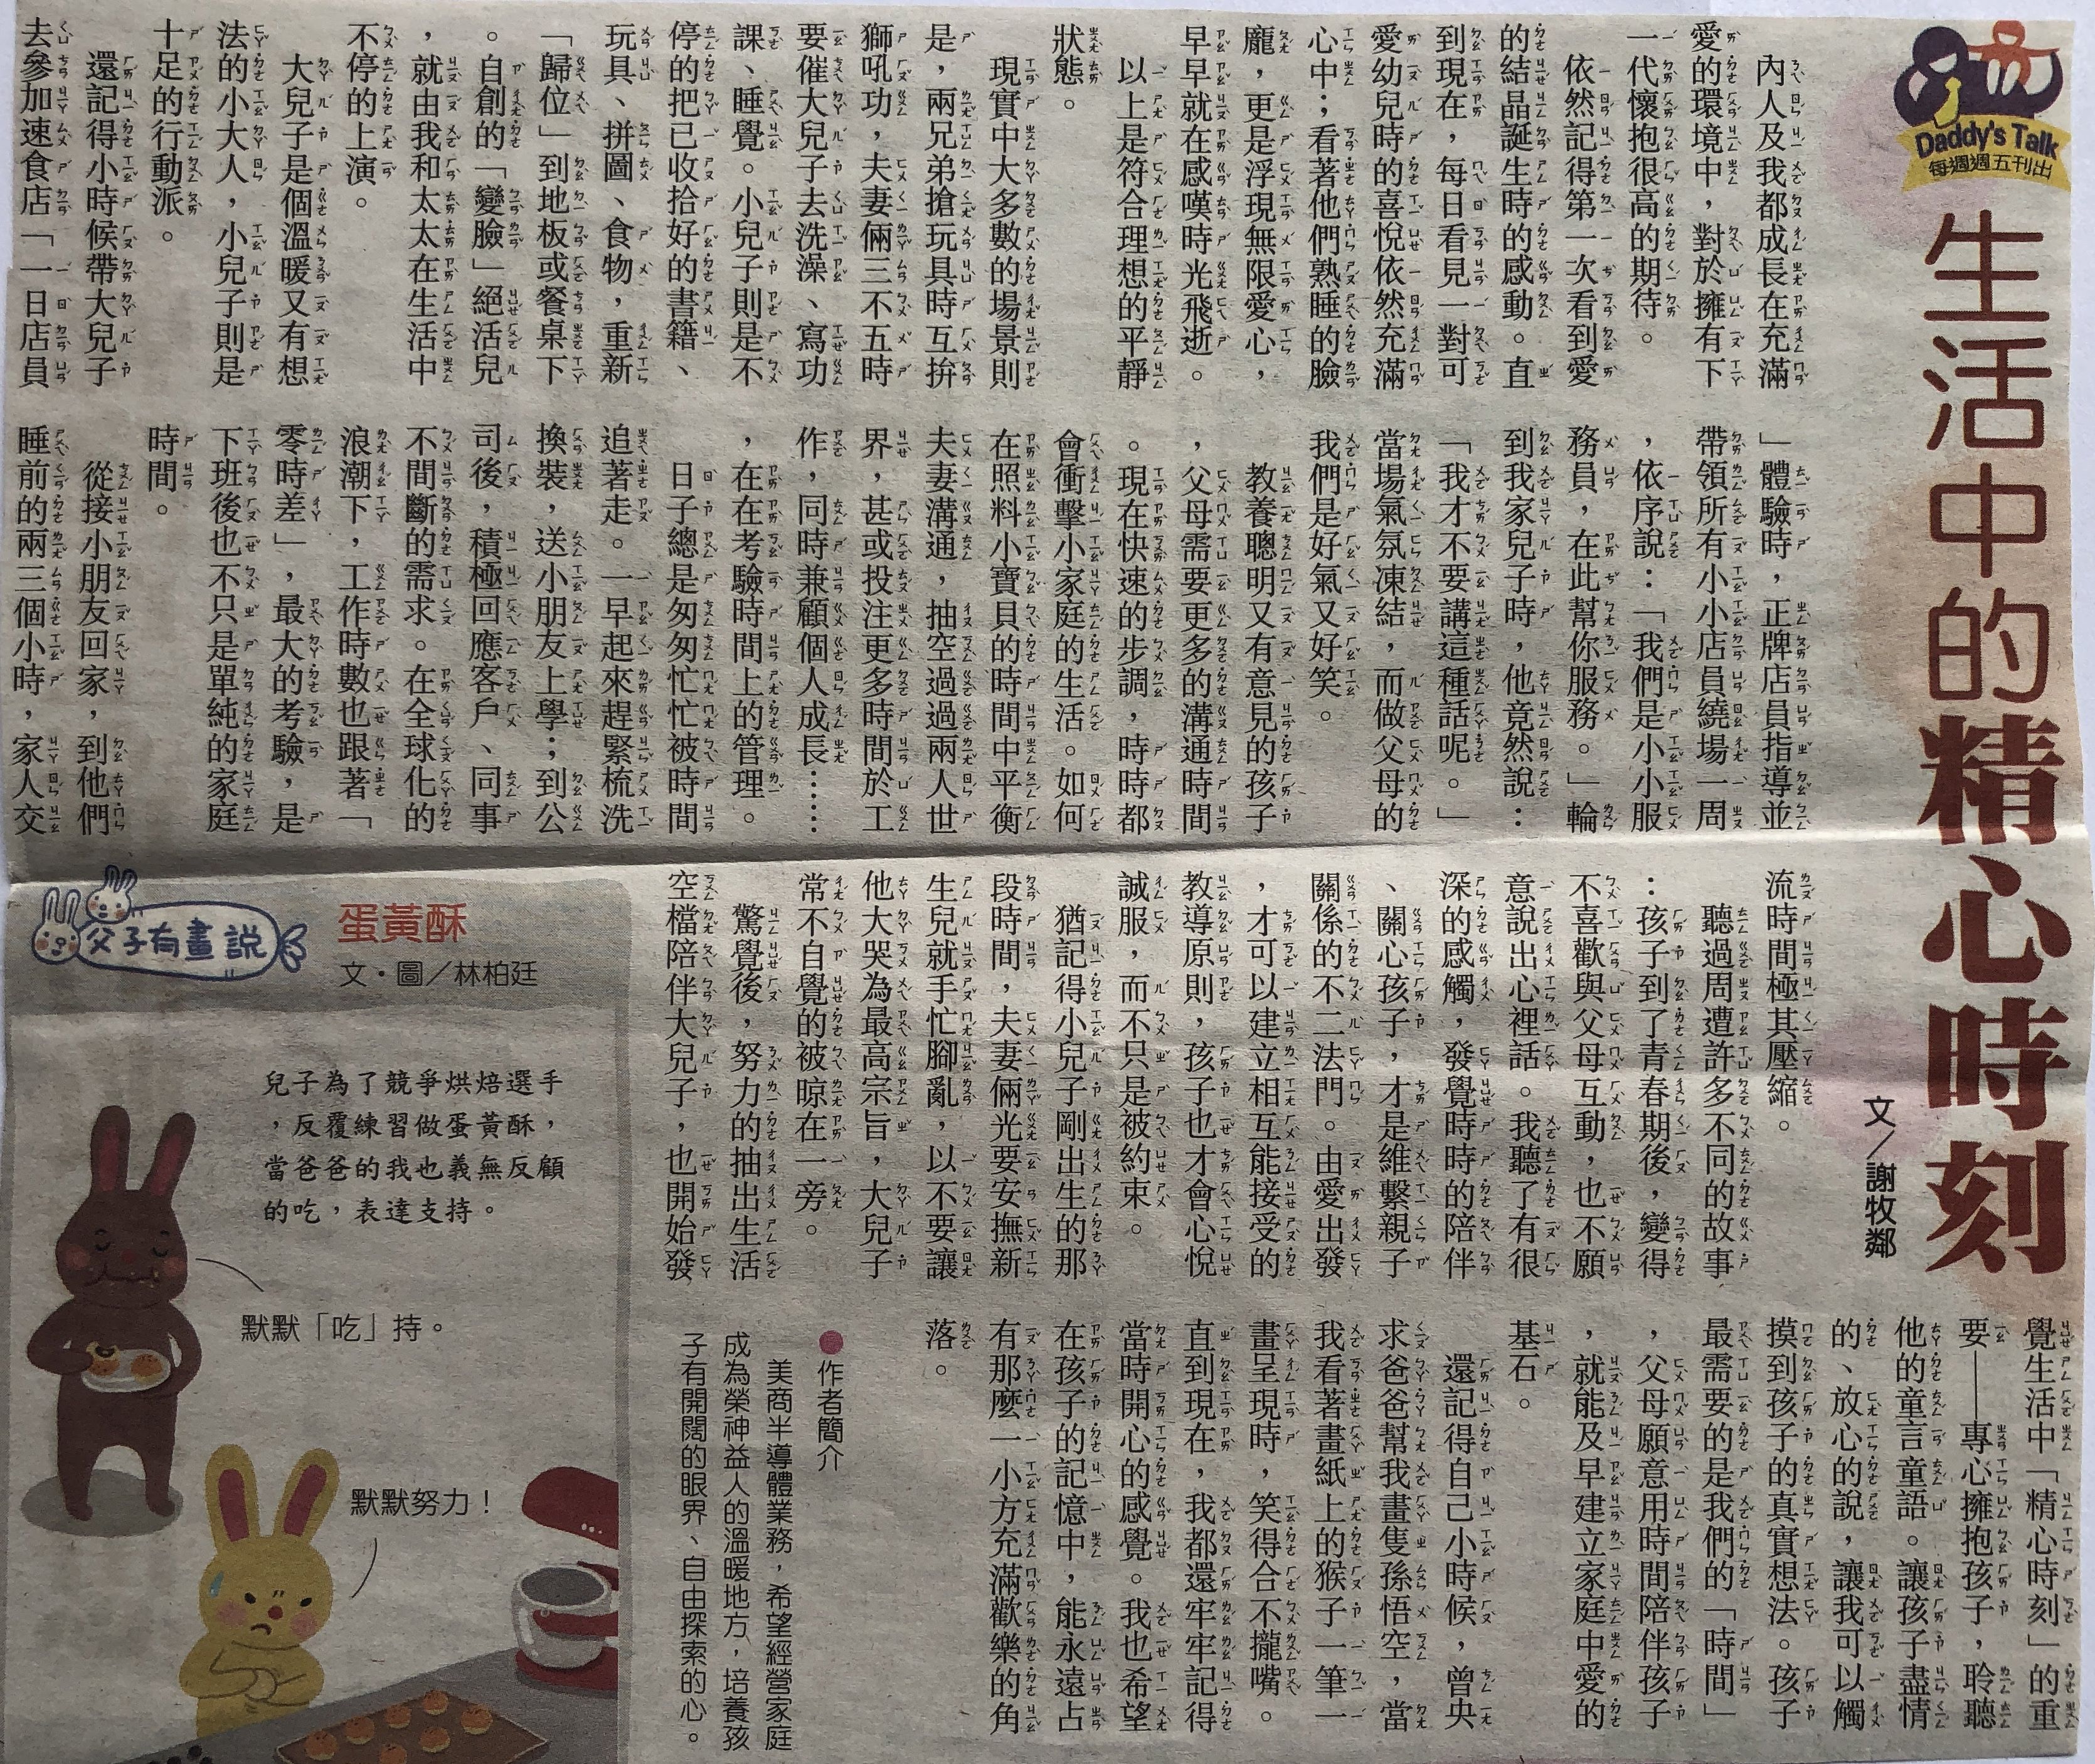 Daddy's Talk
每週週五刊出
生活中的精心時刻
文／謝牧鄰
內人及我都成長在充滿
愛的環境中，對於擁有下
一代懷抱很高的期待。
依然記得第一次看到愛
的結晶誕生時的感動。直
到現在，每日看見一對可
愛幼兒時的喜悅依然充滿
心中；看著他們熟睡的臉
龐，更是浮現無限愛心，
早早就在感嘆時光飛逝。
以上是符合理想的平靜
狀態。
現實中大多數的場景則
是，兩兄弟搶玩具時互拚
獅吼功，夫妻倆三不五時
要催大兒子去洗澡、寫功
課、睡覺。小兒子則是不
停的把已收拾好的書籍、
玩具、拼圖、食物，重新
「歸位」到地板或餐桌下
。自創的「變臉」絕活兒
，就由我和太太在生活中
不停的上演。
大兒子是個溫暖又有想
法的小大人，小兒子則是
十足的行動派。
還記得小時候帶大兒子
去參加速食店「一日店員
」體驗時，正牌店員指導並
帶領所有小小店員繞場一周
，依序說：「我們是小小服
務員，在此幫你服務。」輪
到我家兒子時，他竟然說：
「我才不要講這種話呢。」
當場氣氛凍結，而做父母的
我們是好氣又好笑。
教養聰明又有意見的孩子
，父母需要更多的溝通時間
。現在快速的步調，時時都
會衝擊小家庭的生活。如何
在照料小寶貝的時間中平衡
夫妻溝通，抽空過過兩人世
界，甚或投注更多時間於工
作，同時兼顧個人成長……
，在在考驗時間上的管理。
日子總是匆匆忙忙被時間
追著走。一早起來趕緊梳洗
換裝，送小朋友上學；到公
司後，積極回應客戶、同事
不間斷的需求。在全球化的
浪潮下，工作時數也跟著「
零時差」，最大的考驗，是
下班後也不只是單純的家庭
時間。
從接小朋友回家，到他們
睡前的兩三個小時，家人交
流時間極其壓縮。
聽過周遭許多不同的故事
：孩子到了青春期後，變得
不喜歡與父母互動，也不願
意說出心裡話。我聽了有很
深的感觸，發覺時時的陪伴
、關心孩子，才是維繫親子
關係的不二法門。由愛出發
，才可以建立相互能接受的
教導原則，孩子也才會心悅
誠服，而不只是被約束。
猶記得小兒子剛出生的那
段時間，夫妻倆光要安撫新
生兒就手忙腳亂，以不要讓
他大哭為最高宗旨，大兒子
常不自覺的被晾在一旁。
驚覺後，努力的抽出生活
空檔陪伴大兒子，也開始發
覺生活中「精心時刻」的重
要——專心擁抱孩子，聆聽
他的童言童語。讓孩子盡情
的、放心的說，讓我可以觸
摸到孩子的真實想法。孩子
最需要的是我們的「時間」
，父母願意用時間陪伴孩子
，就能及早建立家庭中愛的
基石。
還記得自己小時候，曾央
求爸爸幫我畫隻孫悟空，當
我看著畫紙上的猴子一筆一
畫呈現時，笑得合不攏嘴。
直到現在，我都還牢牢記得
當時開心的感覺。我也希望
在孩子的記憶中，能永遠占
有那麼一小方充滿歡樂的角
落。
●作者簡介
美商半導體業務，希望經營家庭
成為榮神益人的溫暖地方，培養孩
子有開闊的眼界、自由探索的心。
父子有畫說
蛋黃酥
文・圖／林柏廷
兒子為了競爭烘焙選手
，反覆練習做蛋黃酥，
當爸爸的我也義無反顧
的吃，表達支持。
默默「吃」持。
默默努力！